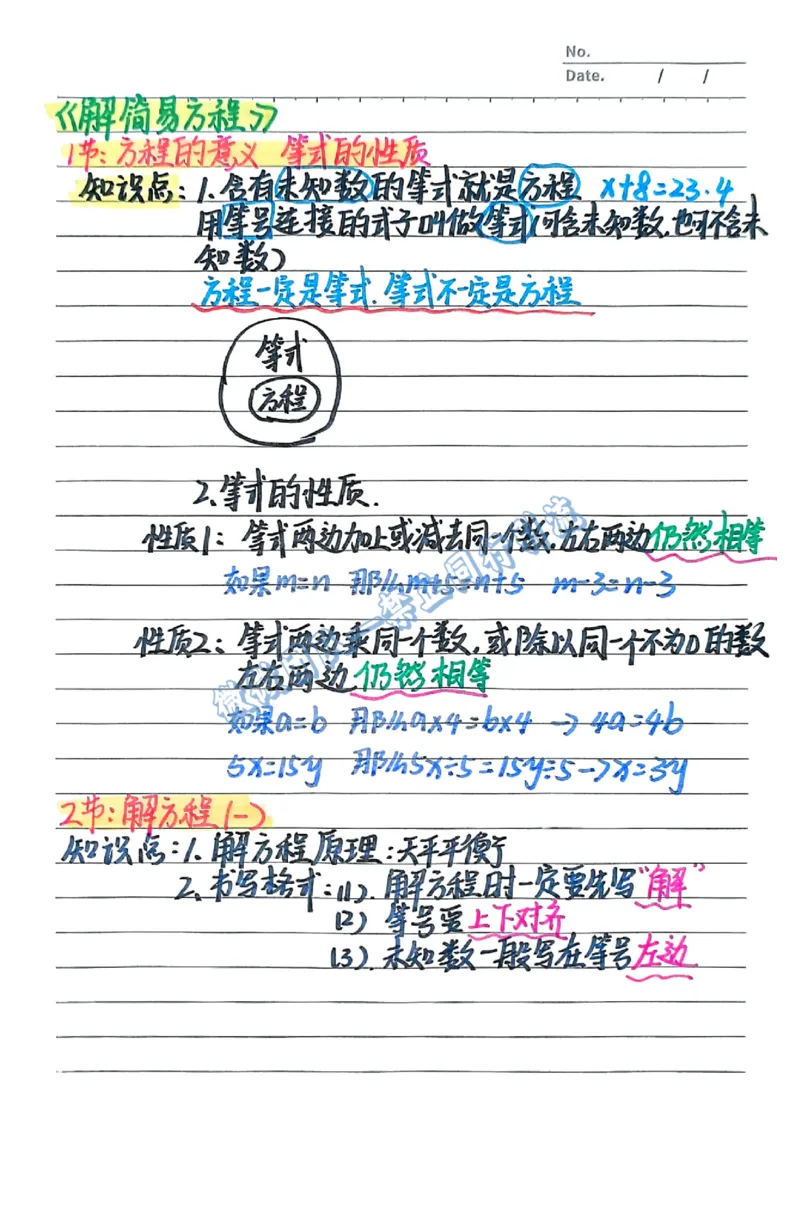 No.
Date. / /
《解简易方程》
1节:方程的意义 等式的性质
知识点:1.含有未知数的等式就是方程 x+8=23.4
用等号连接的式子叫做等式(可含未知数,也可不含未
知数)
方程一定是等式.等式不一定是方程
等式
方程
2.等式的性质.
性质1:等式两边加上或减去同一个数,左右两边仍然相等
如果m=n 那么m+5=n+5 m-3=n-3
性质2:等式两边乘同一个数,或除以同一个不为0的数
左右两边仍然相等
如果a=b 那么a×4=b×4 → 4a=4b
5x=15y 那么5x÷5=15y÷5→x=3y
2节:解方程(一)
知识点:1.解方程原理:天平平衡
2.书写格式:(1).解方程时一定要先写"解"
(2) 等号要上下对齐
(3).未知数一般写在等号左边